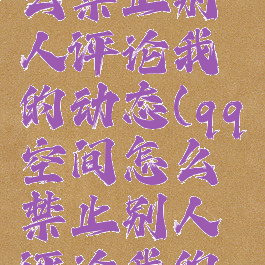 么禁止别
人评论我
的动态(qq
空间怎么
禁止别人
评论我的